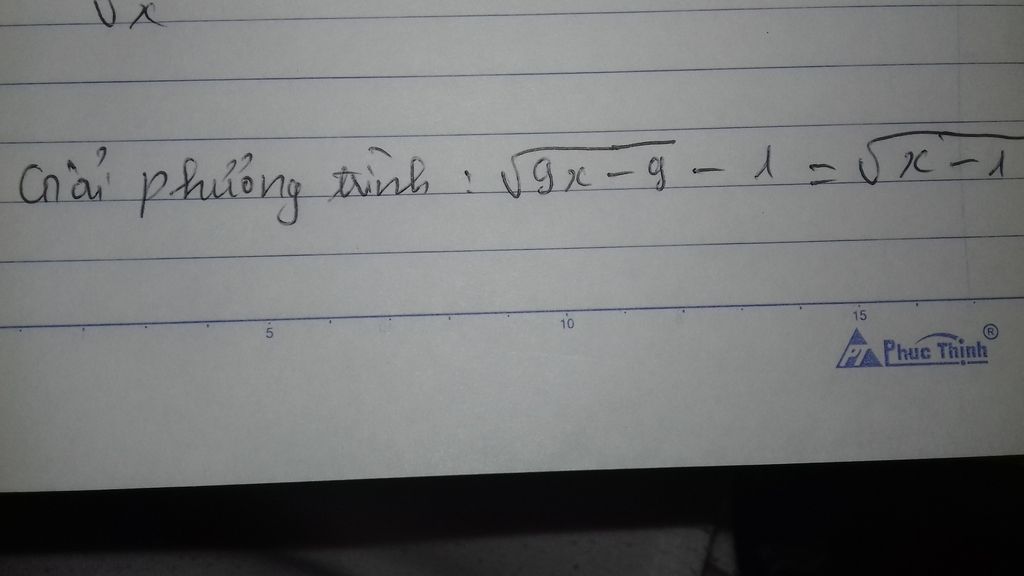 √x
Giải phương trình : √9x - 9 - 1 = √x - 1
5 10 15
Phuc Thinh ®